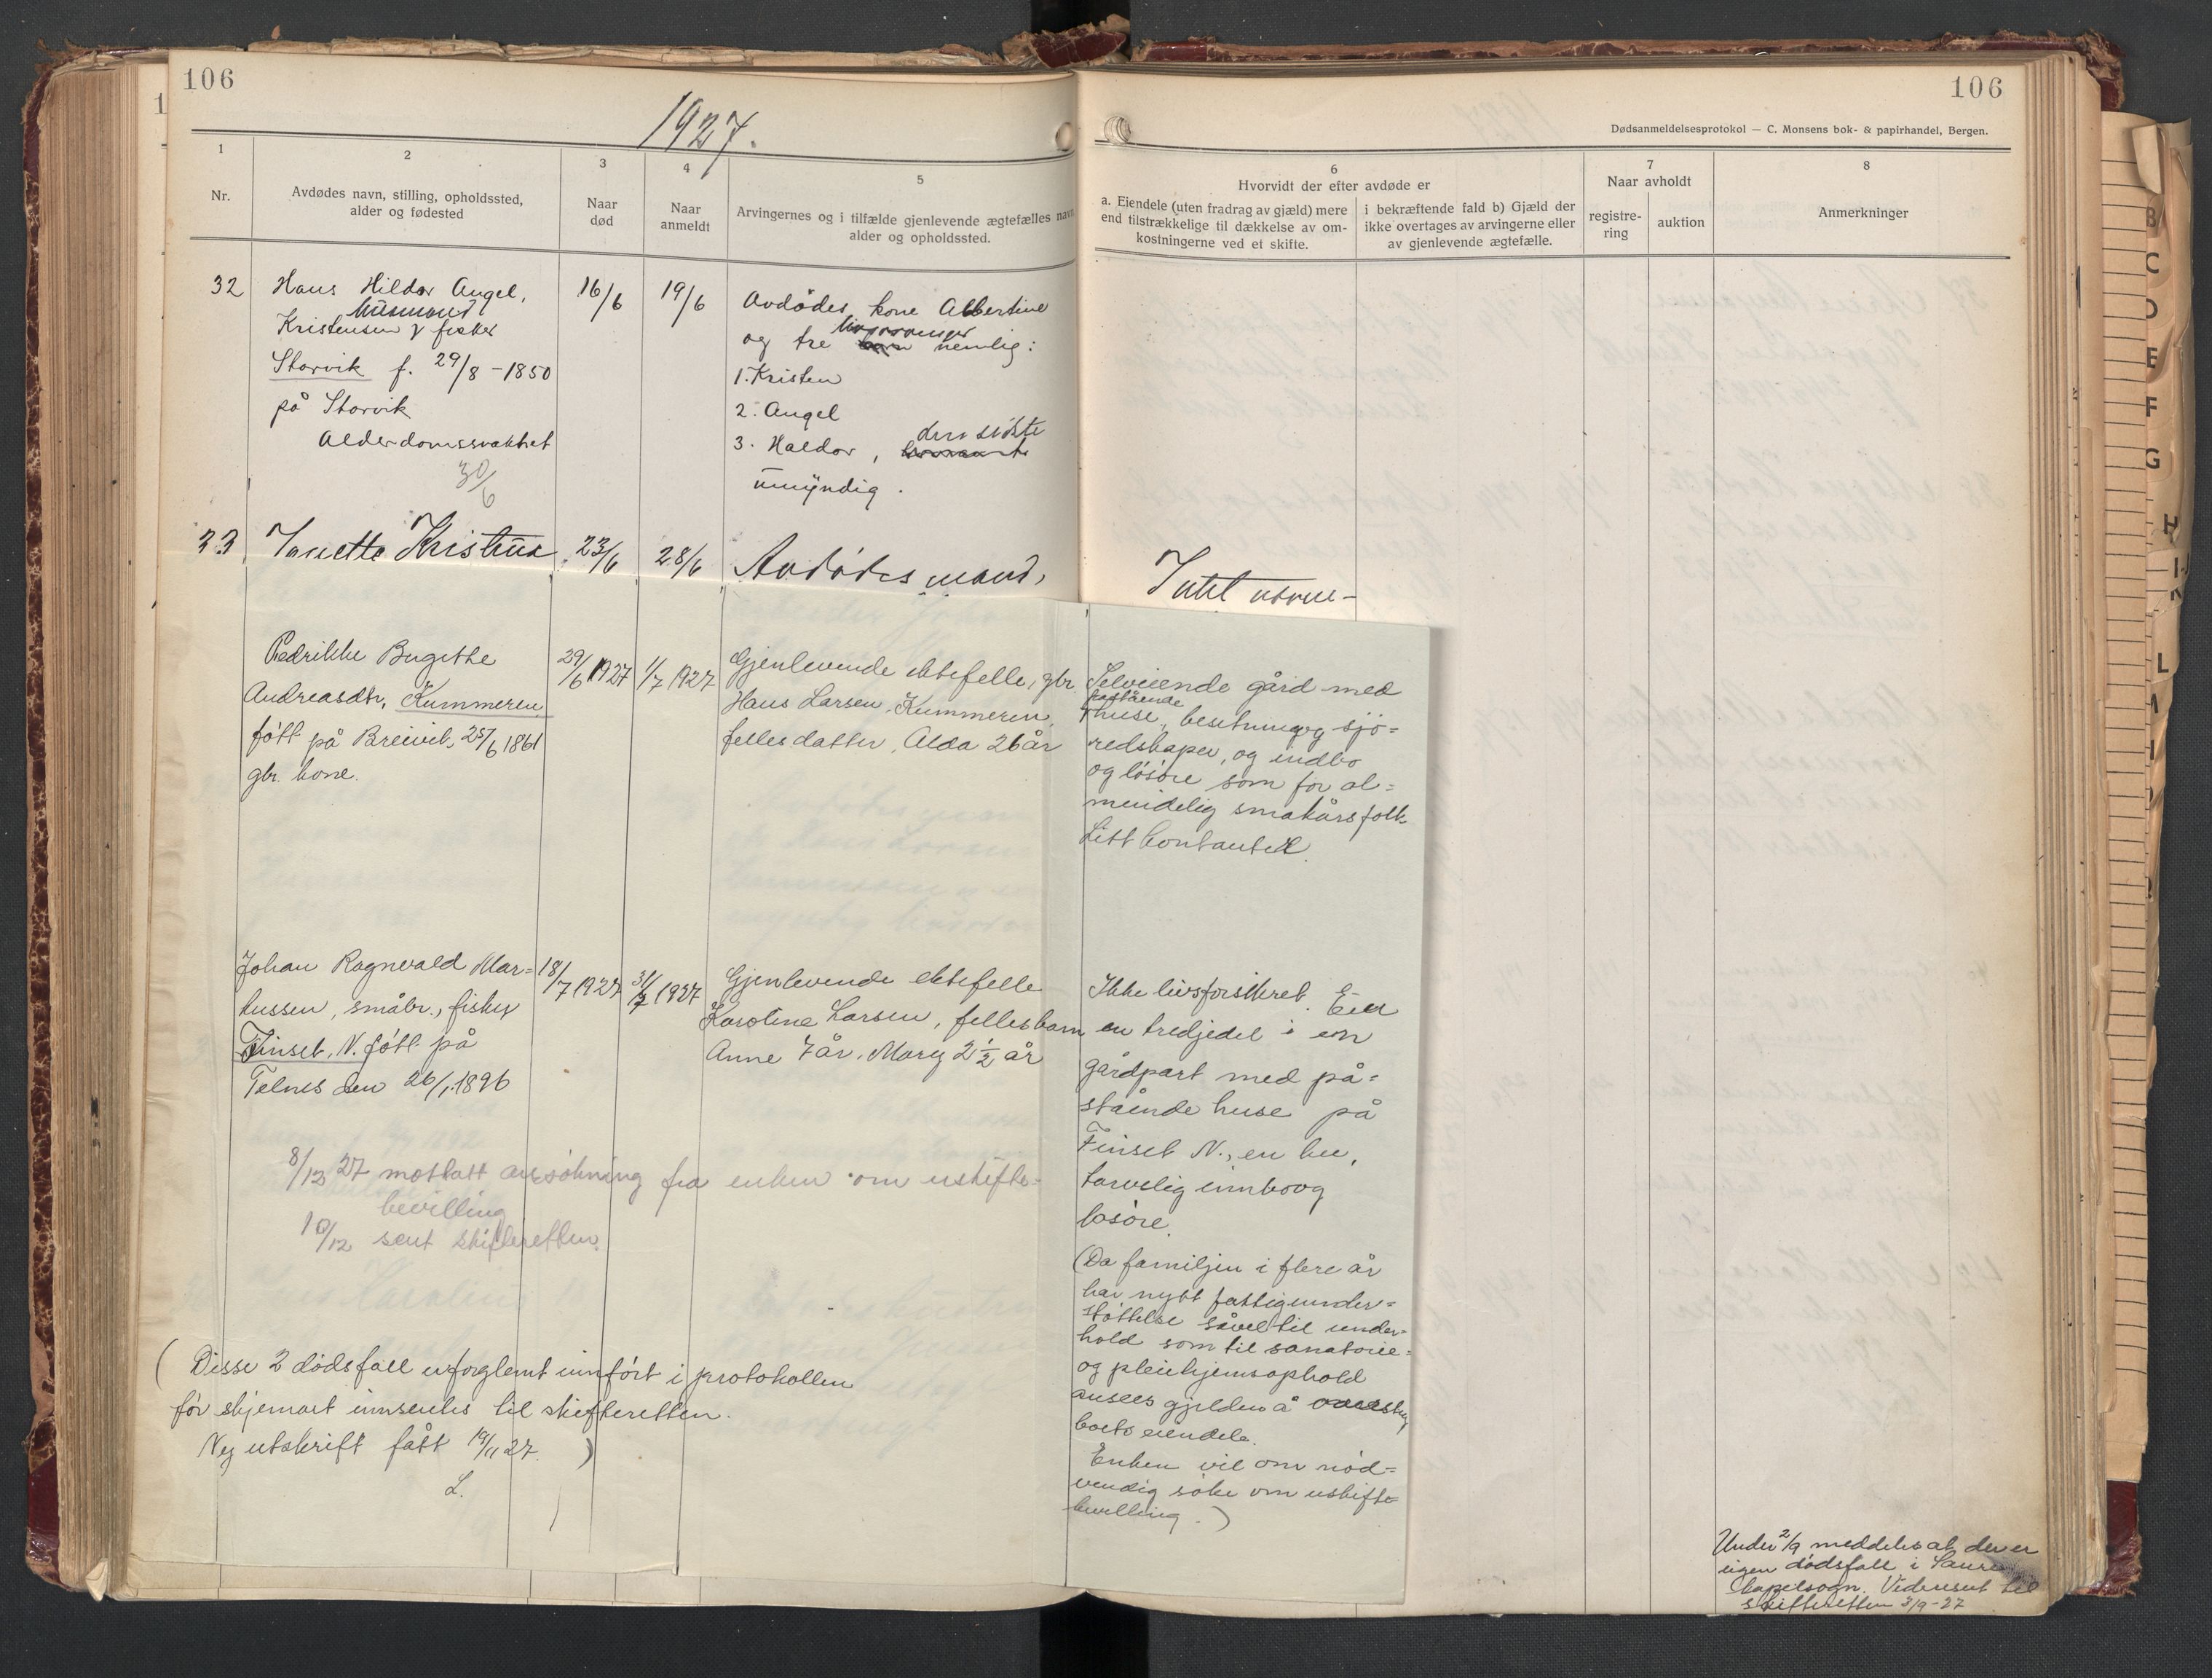 106
106
1927.
Dødsanmeldelsesprotokol — C. Monsens bok- & papirhandel, Bergen.
1
Nr.
2
Avdødes navn, stilling, opholdssted,
alder og fødested
3
Naar
død
4
Naar
anmeldt
5
Arvingernes og i tilfælde gjenlevende ægtefælles navn
alder og opholdssted.
6
Hvorvidt der efter avdøde er
a. Eiendele (uten fradrag av gjæld) mere
end tilstrækkelige til dækkelse av om-
kostningerne ved et skifte.
i bekræftende fald b) Gjæld der
ikke overtages av arvingerne eller
av gjenlevende ægtefælle.
7
Naar avholdt
registre-
ring
auktion
8
Anmerkninger
32
Hans Hildor Angel,
husmand
Kristensen & fisker
Storvik f. 29/8 - 1850
på Storvik
Alderdomssvakhet
30/6
16/6
19/6
Avdødes kone Albertine
livsarvinger
og tre nemlig:
1. Kristen
2. Angel
den sidste
3. Haldor,
umyndig.
33
Kristine
23/6
28/6
Avdødes mand,
Intet
Fredrikke Bergithe
Andreasdtr, Kummeren
født på Breivik, 25/6 1861
gbr. kone.
29/6 1927
1/7 1927
Gjenlevende ektefelle, gbr.
Hans Larsen, Kummeren,
felles datter, Alda 26 år
Selveiende gård med
påstående
huse, besetning og sjø=
redskaper, og indbo
og løsøre som for al=
mindelig småkårsfolk.
Litt kontanter.
Johan Ragnvald Mar=
kussen, småbr., fisker
Finset, N. født på
Telnes den 26/1.1896
18/7 1927
31/7 1927
Gjenlevende ektefelle
Karoline Larsen, felles barn
Anne 7 år, Mary 2 1/2 år
Ikke livsforsikret. Eier
en tredjedel i en
gårdpart med på=
stående huse på
Finset N., en ku,
tarvelig innbo og
løsøre.
(Da familjen i flere år
har nytt fattigunder=
støttelse såvel til under=
hold som til sanatorie=
og pleiehjemsophold
ansees gjelden å overstige
boets eiendele.
Enken vil om nød=
vendig søke om uskifte
bevilling.)
8/12 27 mottatt ansøkning fra enken om uskifte-
bevilling
10/12 sent skifteretten.
(Disse 2 dødsfall uforglemt innført i protokollen
før skjemaet innsentes til skifteretten.
Ny utskrift fått 19/11 27.)
L.
Under 2/9 meddeles at der er
ingen dødsfall i
kapelsogn. Videresent til
skifteretten 3/9-27